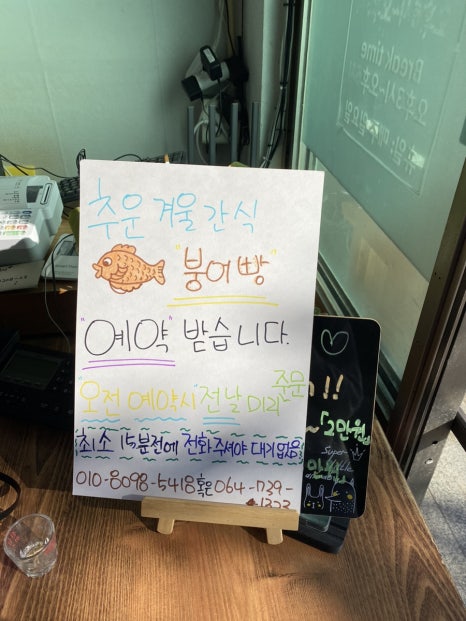 추운 겨울 간식
"붕어빵"
"예약" 받습니다.
"오전 예약시" 전날 미리 주문
최소 15분전에 전화 주셔야 대기 없음
010-8098-5418 혹은 064-739-1323
!!
~ 2만원
Super
Break time
오후 3시~오후